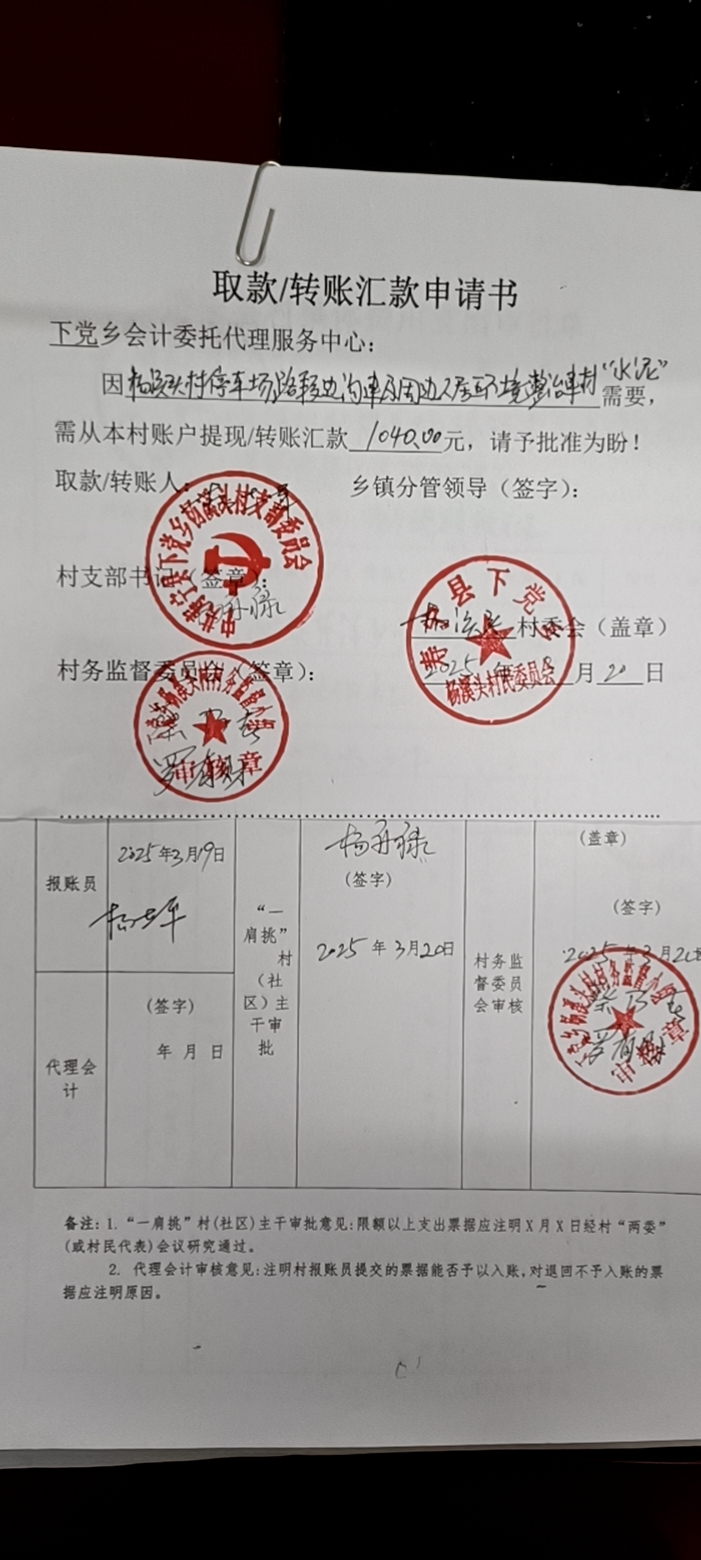 取款/转账汇款申请书
下党乡会计委托代理服务中心:
因杨溪头村停车场路 边沟 及周边人居环境整治 材“水泥”需要,
需从本村账户提现/转账汇款 1040.00元, 请予批准为盼!
取款/转账人:
乡镇分管领导(签字):
中共寿宁县下党乡杨溪头村支部委员会
村支部书记(签章):
寿宁县下党乡
村委会(盖章)
杨溪头村民委员会
2025年 月20日
村务监督委员会(签章):
下党乡杨溪头村村务监督小组
审核章
报账员
2025年3月19日
“一肩挑”村(社区)主干审批
杨 禄
(签字)
2025年3月20日
村务监督委员会审核
(盖章)
(签字)
2025年3月20日
下党乡杨溪头村村务监督小组
审核章
代理会计
(签字)
年 月 日
备注: 1. “一肩挑”村(社区)主干审批意见:限额以上支出票据应注明X月X日经村“两委”
(或村民代表)会议研究通过。
2. 代理会计审核意见:注明村报账员提交的票据能否予以入账,对退回不予入账的票
据应注明原因。